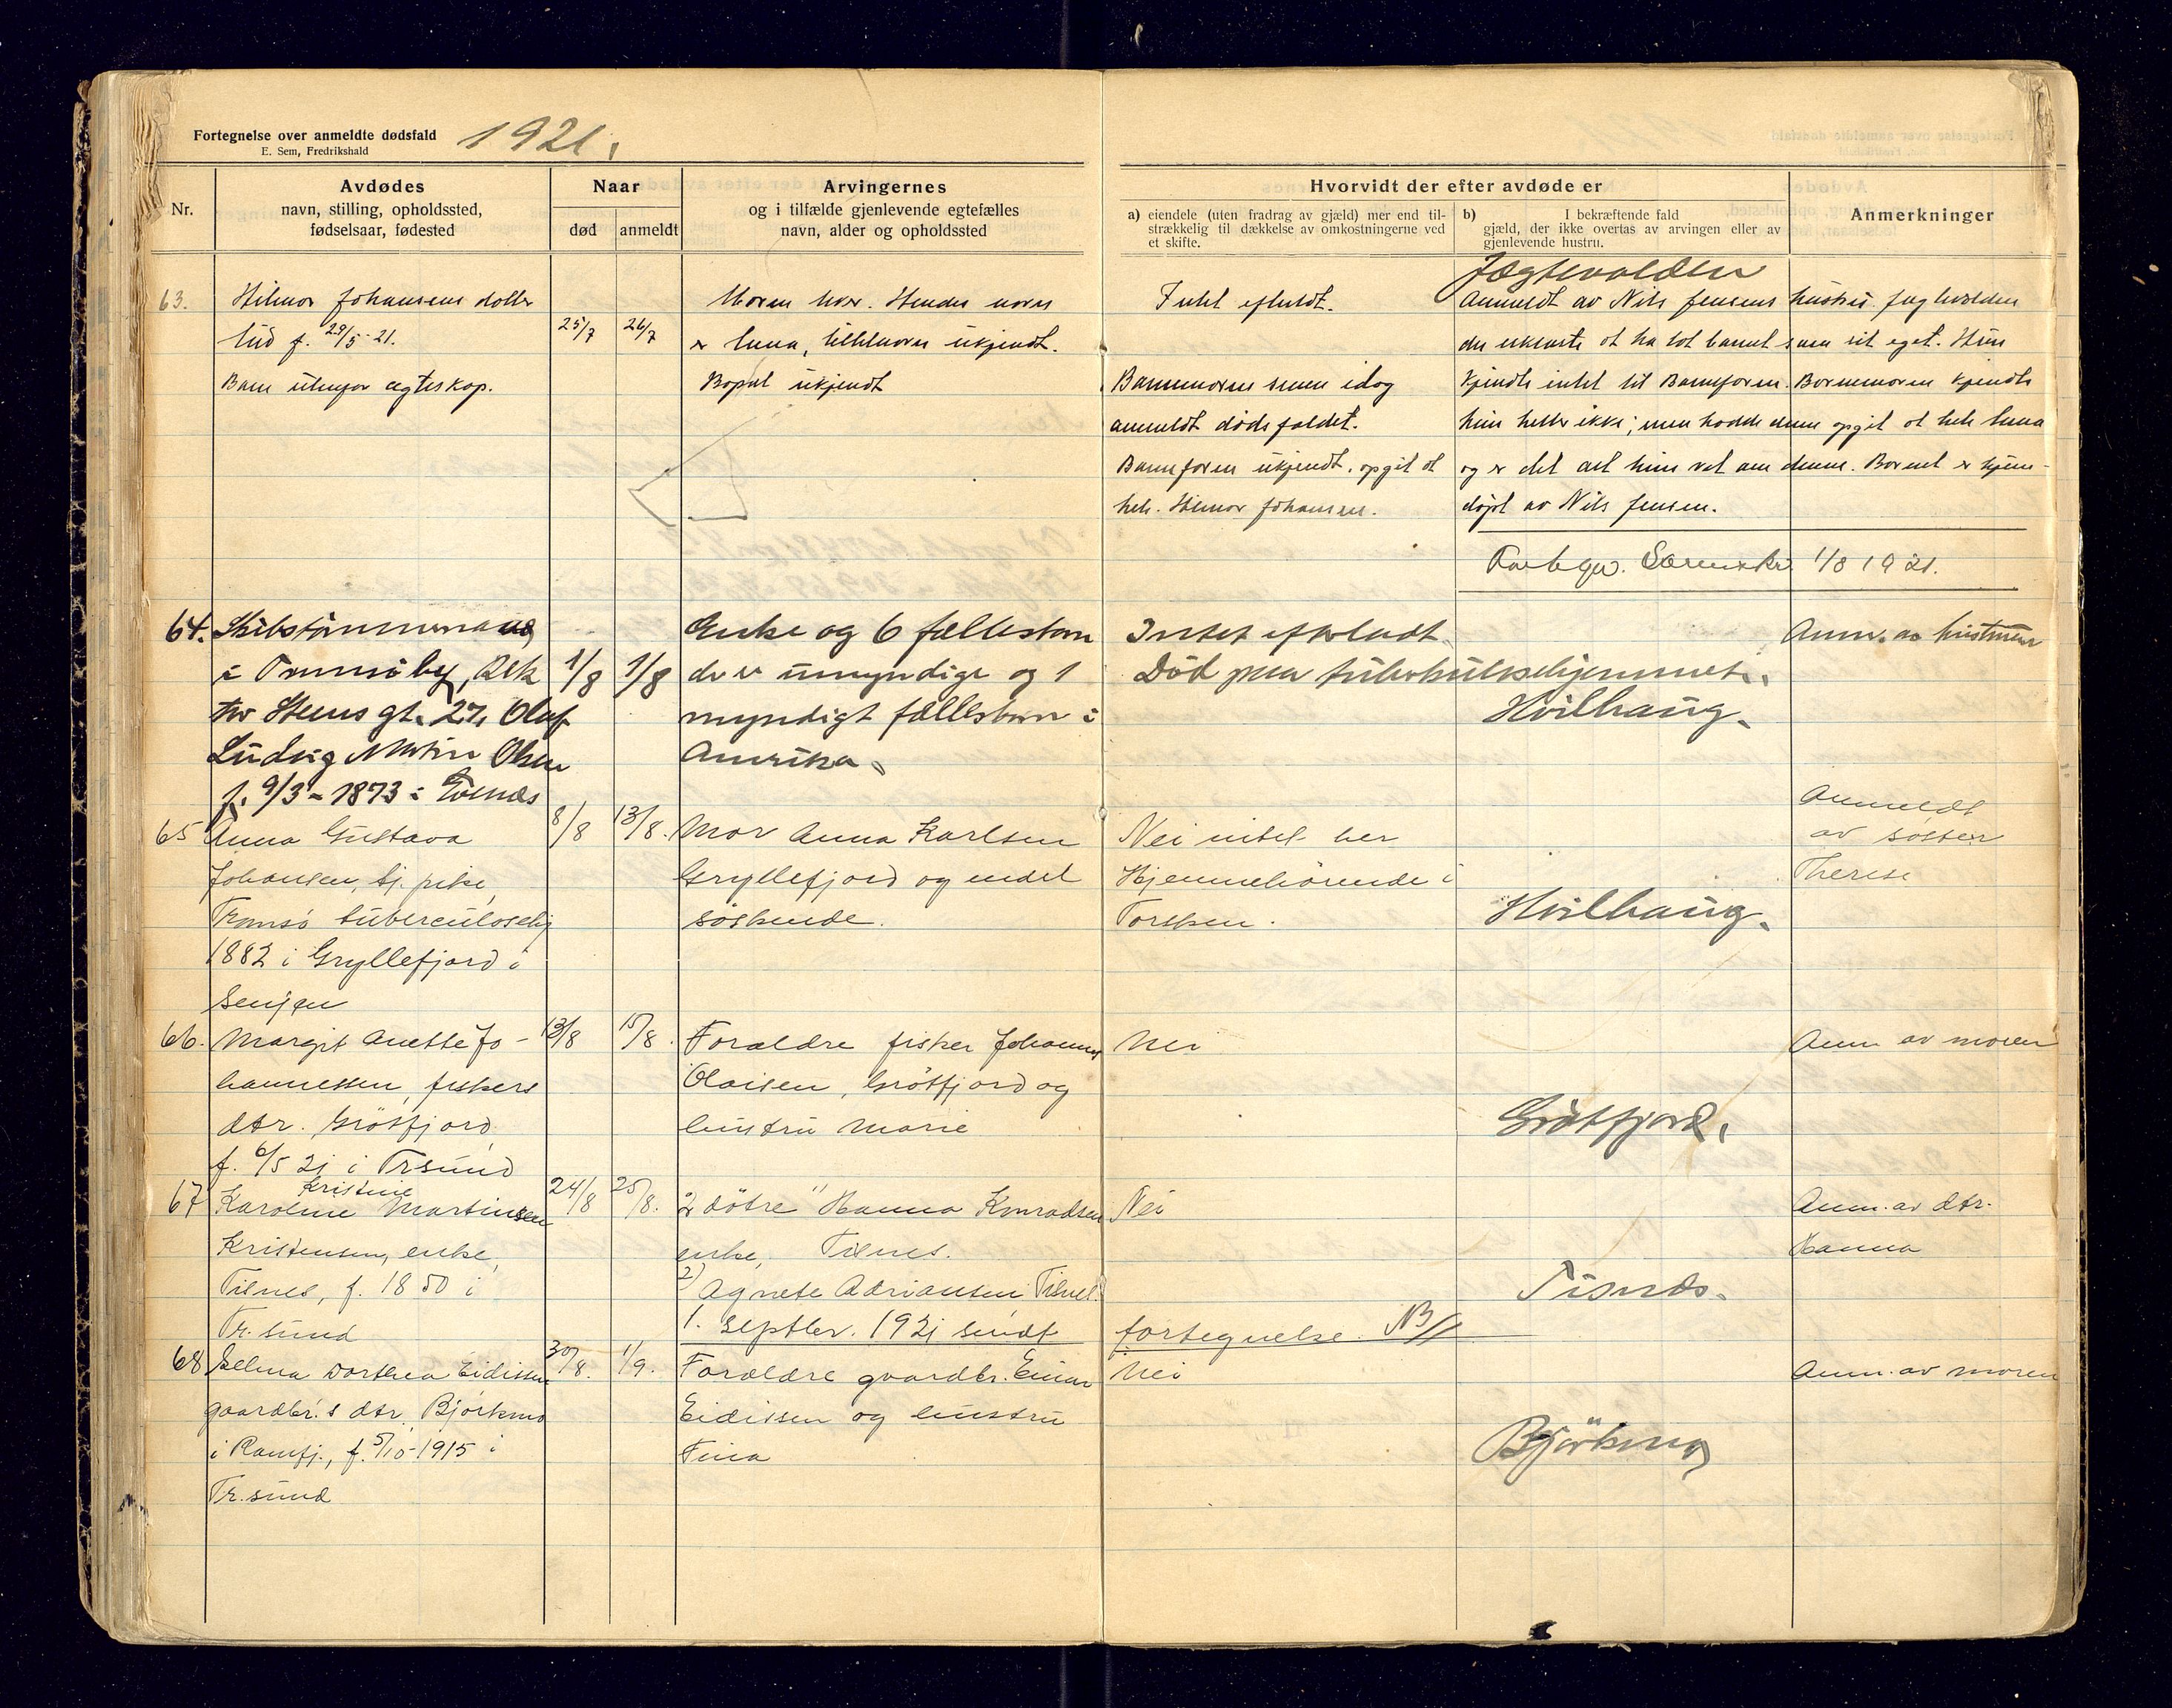 Fortegnelse over anmeldte dødsfald 1921.
E. Sem, Fredrikshald
Nr.
Avdødes
navn, stilling, opholdssted,
fødselsaar, fødested
Naar
død
anmeldt
Arvingernes
og i tilfælde gjenlevende egtefælles
navn, alder og opholdssted
Hvorvidt der efter avdøde er
a) eiendele (uten fradrag av gjæld) mer end til-
strækkelig til dækkelse av omkostningerne ved
et skifte.
b) I bekræftende fald
gjæld, der ikke overtas av arvingen eller av
gjenlevende hustru.
Anmerkninger
63.
Hilmor Johansens datter
f. 29/5 21.
Barn utenfor ægteskap.
25/7
26/7
Moren hver. Hendes navn
er Anna, tilnavn ukjendt.
Bopæl ukjendt
Intet efterladt.
Barnemoren senere idag
anmeldt dødsfaldet.
Barnefaren ukjendt, opgit at
hete Hilmor Johansen.
Jægtevolden
Anmeldt av Nils Jensens hustru Jægtvolden
der erklærte at ha tat barnet som sit eget. Hun
kjendte intet til Barnefaren. Barnemoren kjendte
hun heller ikke; men hadde denne opgit at hete Anna
og er det alt hun vet om denne. Barnet er hjem-
døpt av Nils Jensen.
1/8 1921.
64.
Skibstømmermand
i Tromsøby,
Steens gt. 27, Olaf
Ludvig Martin Olsen
f. 9/3 - 1873 i Evenes
1/8
1/8
Enke og 6 fællesbarn
der er umyndige og 1
myndigt fællesbarn i
Amerika.
Intet efterladt
Død paa tuberkulosehjemmet.
Hvilhaug.
Anm. av hustruen
65
Anna Gustava
Johansen, tj. pike,
Tromsø tuberculosehj
1882 i Gryllefjord i
Senjen
8/8
13/8.
Mor Anna Karlsen
Gryllefjord og endel
søskende.
Nei intet her
Hjemmehørende i
Torsken.
Hvilhaug.
Anmeldt
av søster
Therese
66.
Margit Anette Jo-
hannessen, fiskers
dtr. Grøtfjord
f. 6/5 21 i Trsund
13/8
15/8.
Forældre fisker Johannes
Olaisen, Grøtfjord og
hustru Marie
Nei
Grøtfjord.
Anm av moren
67
Kristine
Karoline Martinsen
Kristensen, enke,
Tisnes, f. 1850 i
Tr.sund
24/8
25/8.
2 døtre 1) Hanna Konradsen
enke, Tisnes.
2) Agnete Adriansen Tisnes.
1. septbr. 1921 sendt fortegnelse. NB//
Nei
Tisnæs.
Anm. av dtr.
Hanna
68
Selma Dorthea Eidissen
gaardbr.s dtr, Bjørkmo
i Ramfj., f. 5/10-1915 i
Tr.sund
30/8.
1/9.
Forældre gaardbr. Einar
Eidissen og hustru
Fina
Nei
Björkmo
Anm. av moren